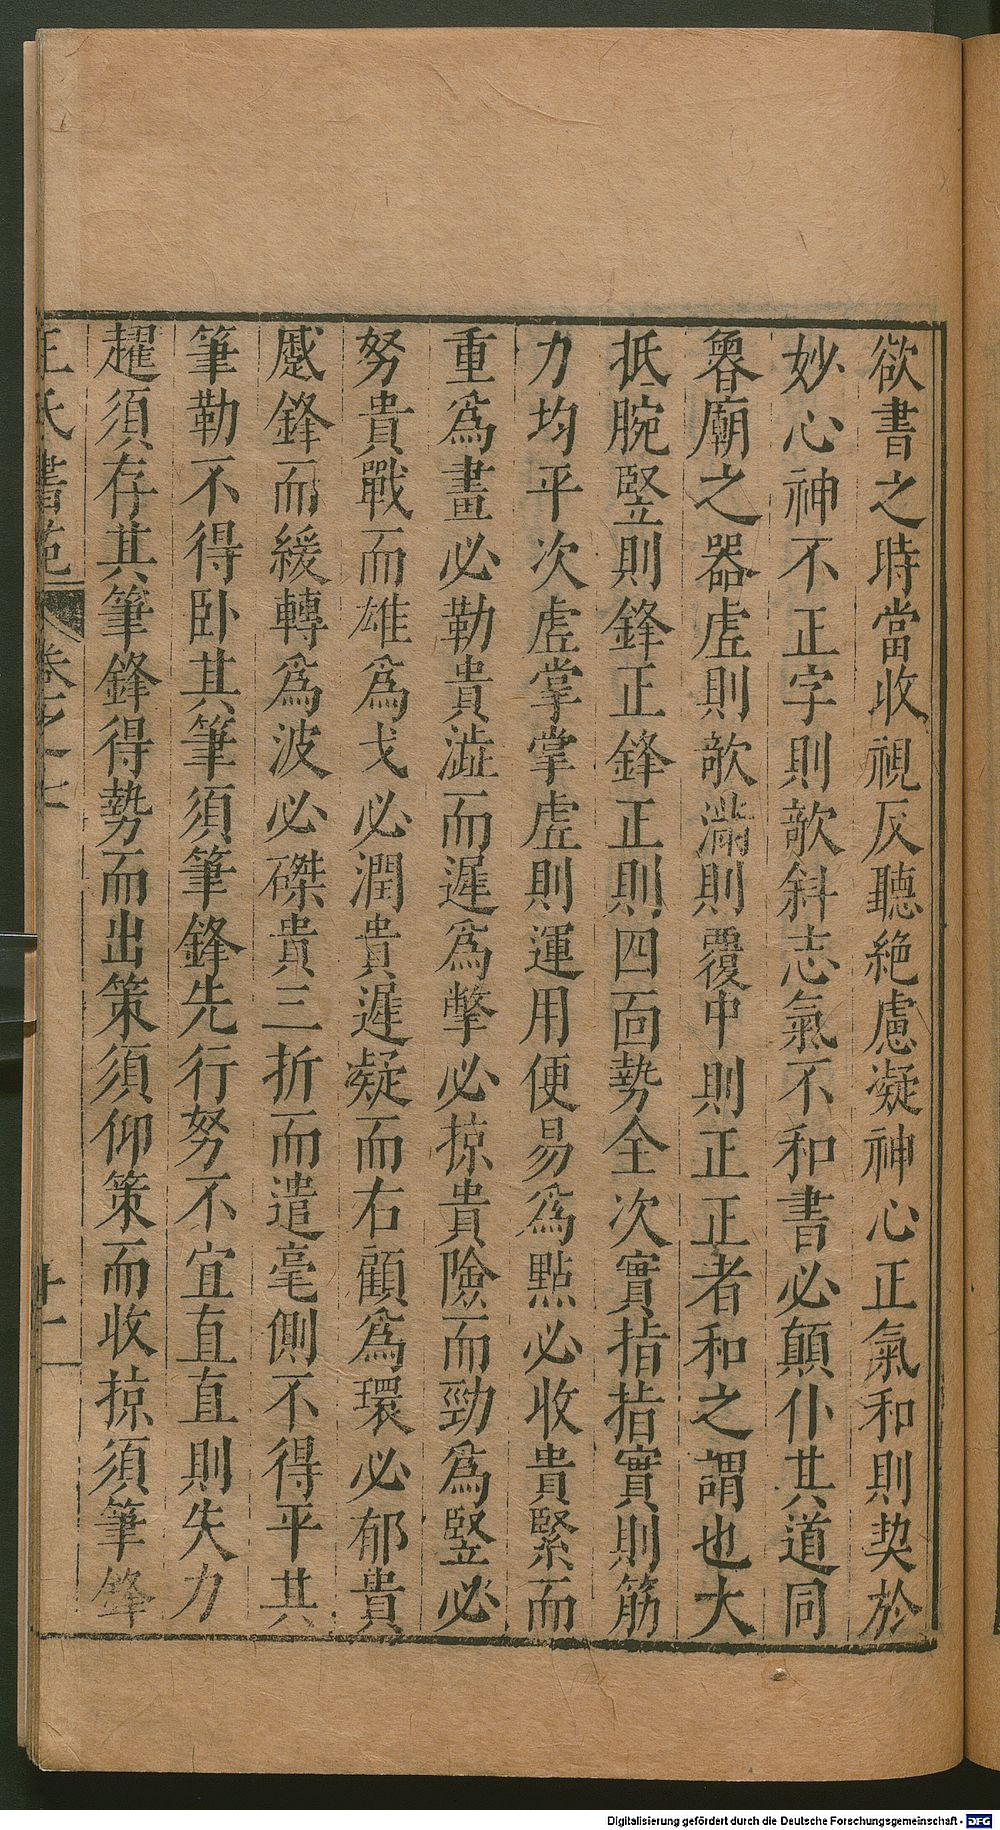 欲書之時當收視反聽絶慮凝神心正氣和則契於
妙心神不正字則敧斜志氣不和書必顛仆其道同
魯廟之器虛則敧滿則覆中則正正者和之謂也大
抵腕竪則鋒正鋒正則四面勢全次實指指實則筋
力均平次虛掌掌虛則運用便易為點必收貴緊而
重為畫必勒貴澁而遲為撆必掠貴險而勁為竪必
努貴戰而雄為戈必潤貴遲疑而右顧為環必郁貴
蹙鋒而緩轉為波必磔貴三折而遣毫側不得平其
筆勒不得卧其筆須筆鋒先行努不宜直直則失力
趯須存其筆鋒得勢而出策須仰策而收掠須筆鋒
王氏書苑
卷之七
廿一
Digitalisierung gefördert durch die Deutsche Forschungsgemeinschaft - DFG